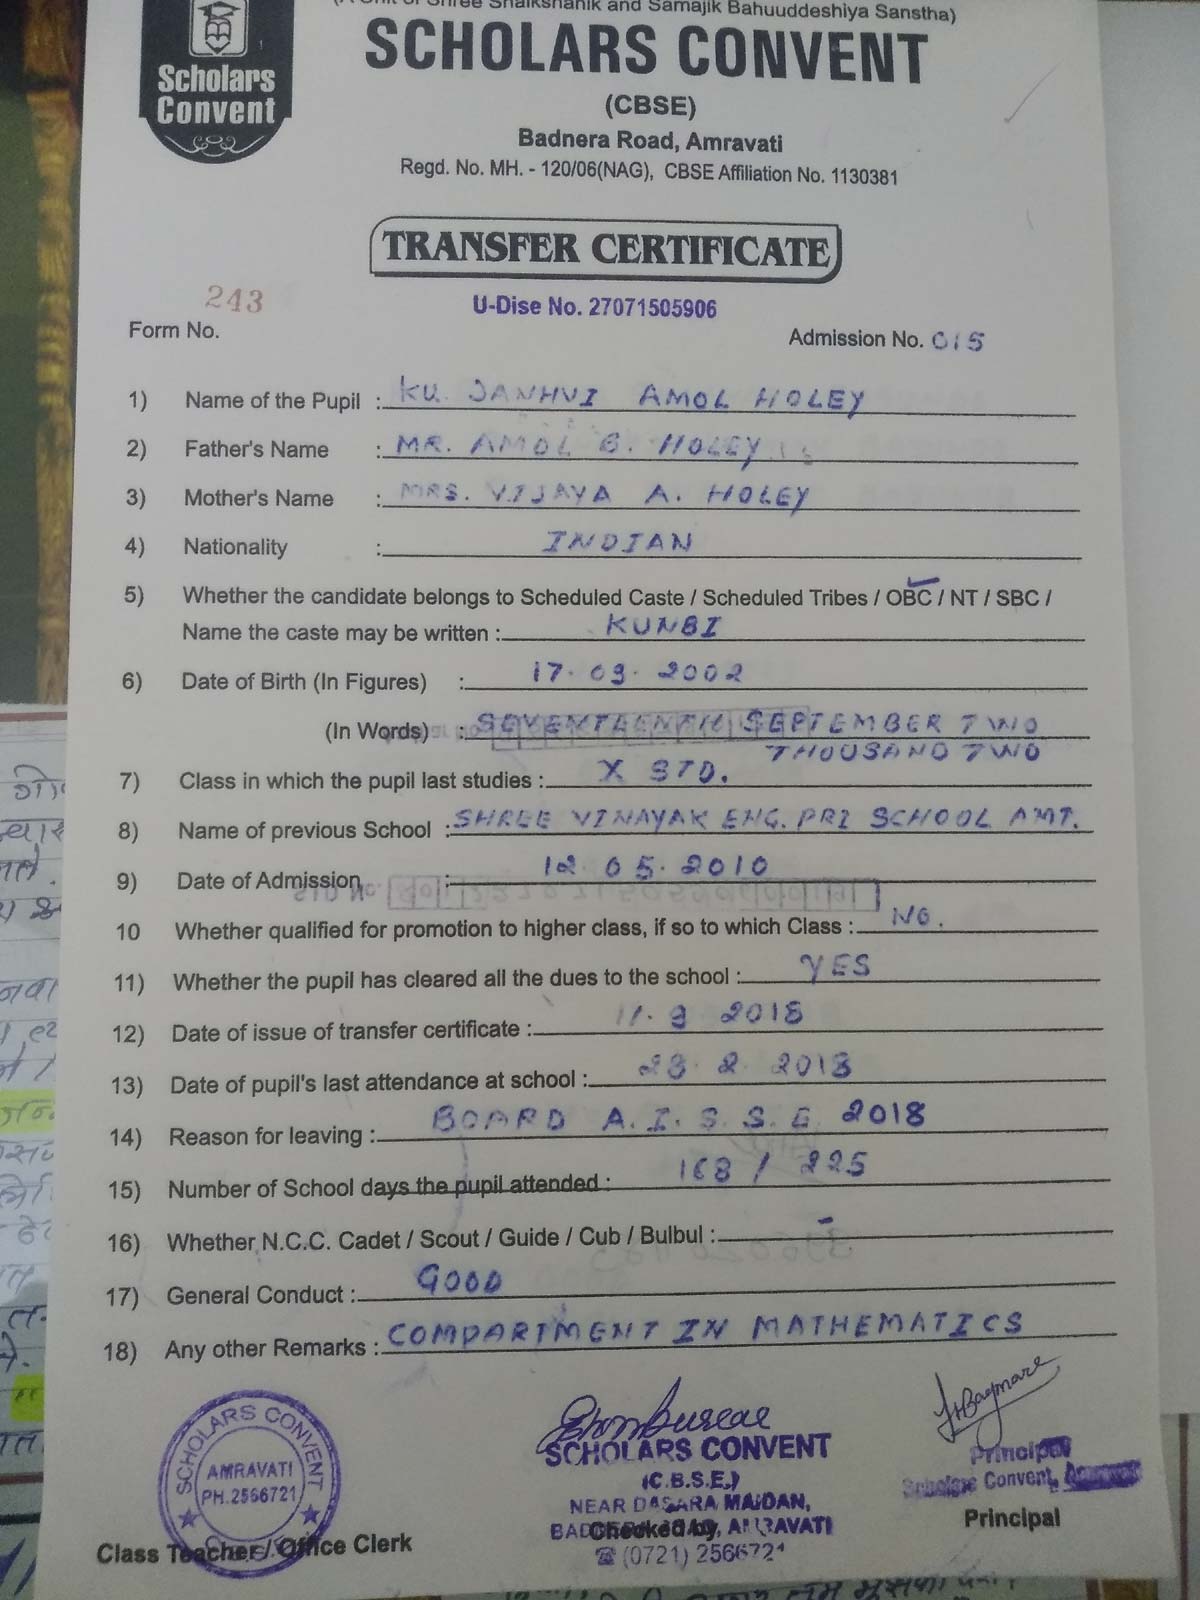 (A Unit of Shree Shaikshanik and Samajik Bahuuddeshiya Sanstha)
SCHOLARS CONVENT
Scholars
Convent
(CBSE)
Badnera Road, Amravati
Regd. No. MH. - 120/06(NAG), CBSE Affiliation No. 1130381
TRANSFER CERTIFICATE
243
U-Dise No. 27071505906
Form No.
Admission No. 015
1) Name of the Pupil : KU. JANHVI AMOL HOLEY
2) Father's Name : MR. AMOL B. HOLEY
3) Mother's Name : MRS. VIJAYA A. HOLEY
4) Nationality : INDIAN
5) Whether the candidate belongs to Scheduled Caste / Scheduled Tribes / OBC / NT / SBC /
Name the caste may be written : KUNBI
6) Date of Birth (In Figures) : 17.09.2002
(In Words) : SEVENTEENTH SEPTEMBER TWO
THOUSAND TWO
7) Class in which the pupil last studies : X STD.
8) Name of previous School : SHREE VINAYAK ENG. PRI SCHOOL AMT.
9) Date of Admission : 12.05.2010
10 Whether qualified for promotion to higher class, if so to which Class : NO.
11) Whether the pupil has cleared all the dues to the school : YES
12) Date of issue of transfer certificate : 11.9 2018
13) Date of pupil's last attendance at school : 2. 2018
14) Reason for leaving : BOARD A.I.S.S.E 2018
15) Number of School days the pupil attended : 168 / 225
16) Whether N.C.C. Cadet / Scout / Guide / Cub / Bulbul : -
17) General Conduct : GOOD
18) Any other Remarks : COMPARTMENT IN MATHEMATICS
SCHOLARS CONVENT
AMRAVATI
PH.2566721
Class Teacher / Office Clerk
SCHOLARS CONVENT
(C.B.S.E.)
NEAR DASARA MAIDAN,
BADNERA ROAD, AMRAVATI
Checked by
☎ (0721) 2566721
Principal
Scholars Convent,
Principal